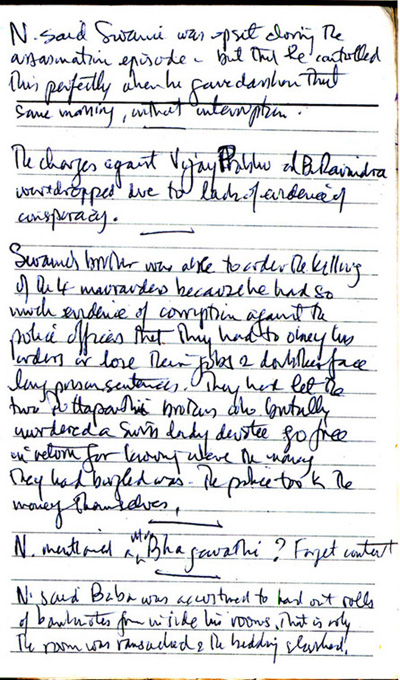 N. said Swami was upset during the
assassination episode - but that he controlled
this perfectly when he gave darshan that
same morning, without interruption.
The charges against Vijay Prabhu and B. Ravindra
were dropped due to lack of evidence of
conspiracy.
Swami's brother was able to order the killing
of the 4 marauders because he had so
much evidence of corruption against the
police officers that they had to obey his
orders or lose their jobs & doubtless face
long prison sentences. They had let the
two Puttaparthi brothers who brutally
murdered a Swiss lady devotee go free
in return for knowing where the money
they had burgled was - the police took the
money themselves.
N. mentioned a Bhagavathi ? Forget context
N. said Baba was accustomed to hand out rolls
of banknotes from inside his rooms. That is why
the room was ransacked & the bedding slashed.